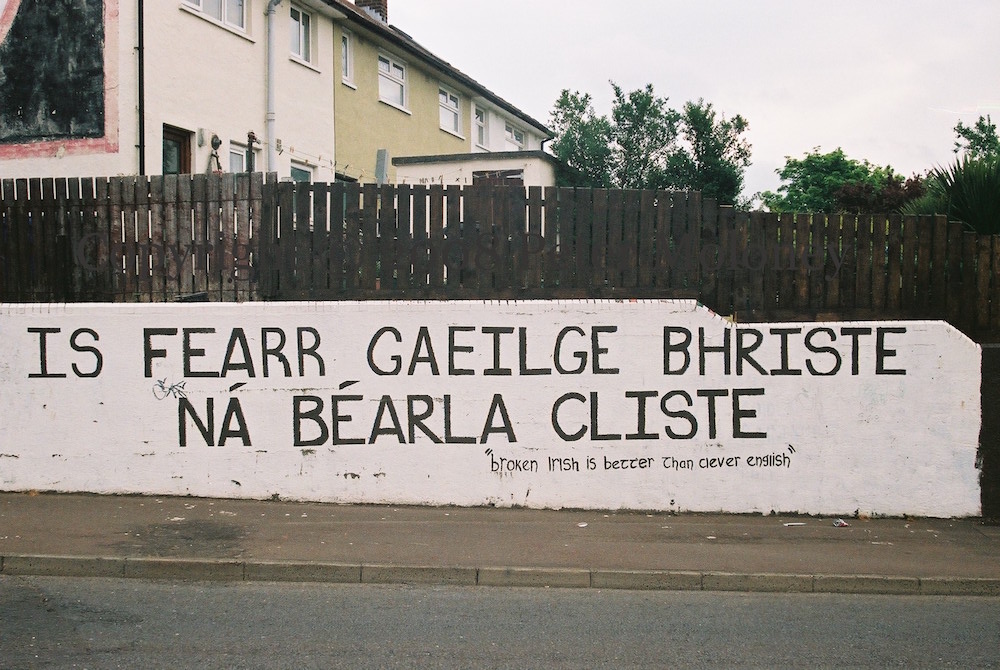 IS FEARR GAEILGE BHRISTE
NÁ BÉARLA CLISTE
"broken Irish is better than clever english"